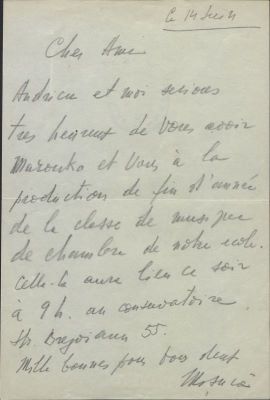 Ce 14 Juin
Cher Ami
et moi serions
tres heureux de vous avoir
Marouka et vous à la
production de fin d'année
de la classe de musique
de chambre de notre ecole.
Celle-la aura lieu ce soir
à 9 h. au conservatoire
Str. 55.
Mille bonnes pour vous deux